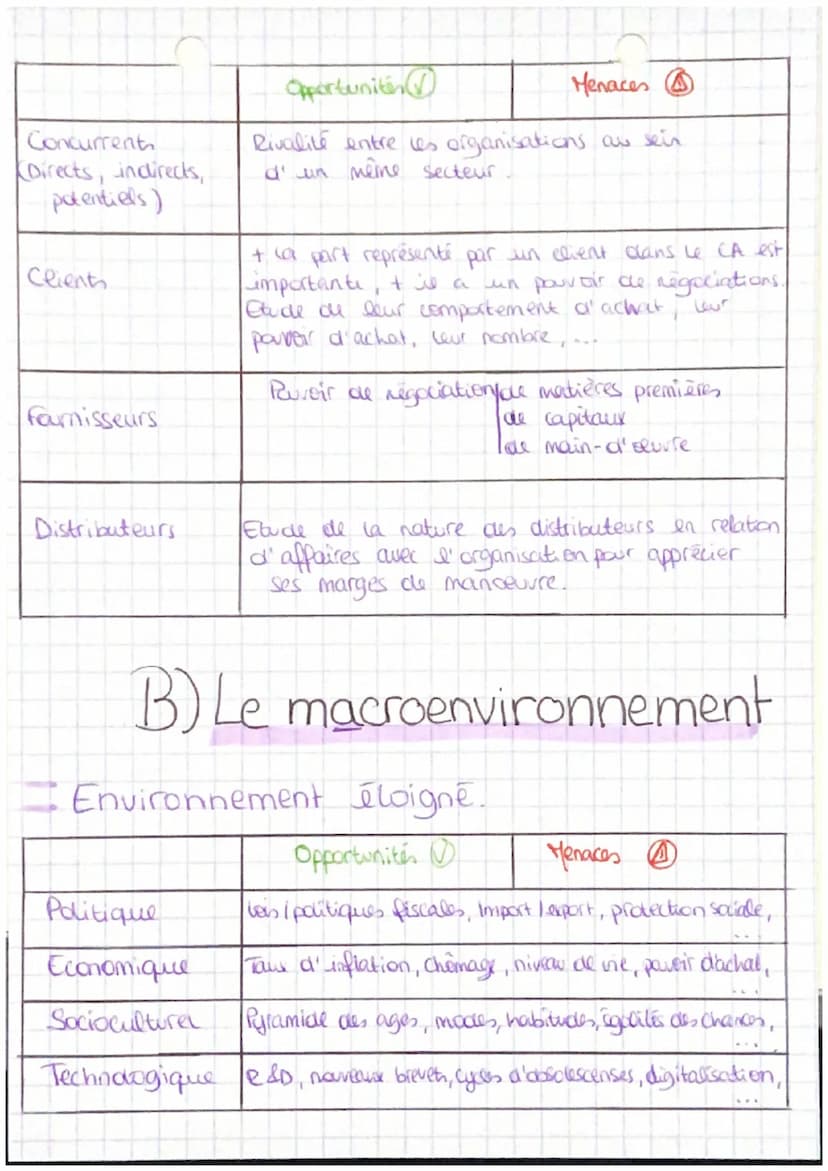 Opportunités Menaces
Concurrents
(Directs, indirects,
potentiels)
Rivalité entre les organisations au sein
d'un même secteur.
Clients
+ la part représenté par un client dans le CA est
importante, + il a un pouvoir de négociations.
Etude de leur comportement d'achat, leur
pouvoir d'achat, leur nombre, ...
Fournisseurs
Pouvoir de négociation de matières premières
de capitaux
de main-d'œuvre
Distributeurs
Etude de la nature des distributeurs en relation
d'affaires avec l'organisation pour apprécier
ses marges de manœuvre.
B) Le macroenvironnement
= Environnement éloigné.
Opportunités Menaces
Politique
Lois / politiques fiscales, Import / export, protection sociale,
...
Economique
Taux d'inflation, chômage, niveau de vie, pouvoir d'achat,
...
Socioculturel
Pyramide des ages, modes, habitudes, égalités des chances,
...
Technologique
R&D, nouveaux brevets, cycles d'obsolescenses, digitalisation,
...